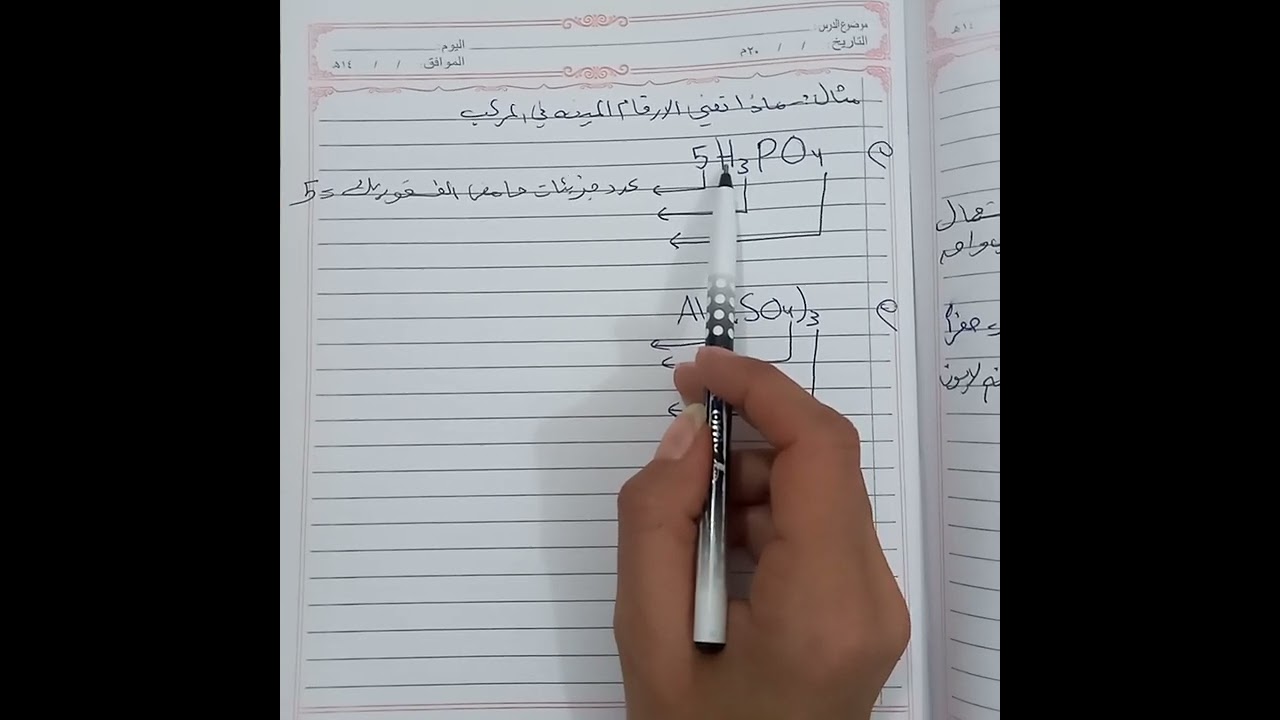 موضوع الدرس:
اليوم
التاريخ / / ٢٠م
الموافق / / ١٤هـ
مثال: ماذا تعني الارقام المبينه في المركب
5H₃PO₄
عدد جزيئات حامض الفسفوريك = 5
Al SO₄)₃